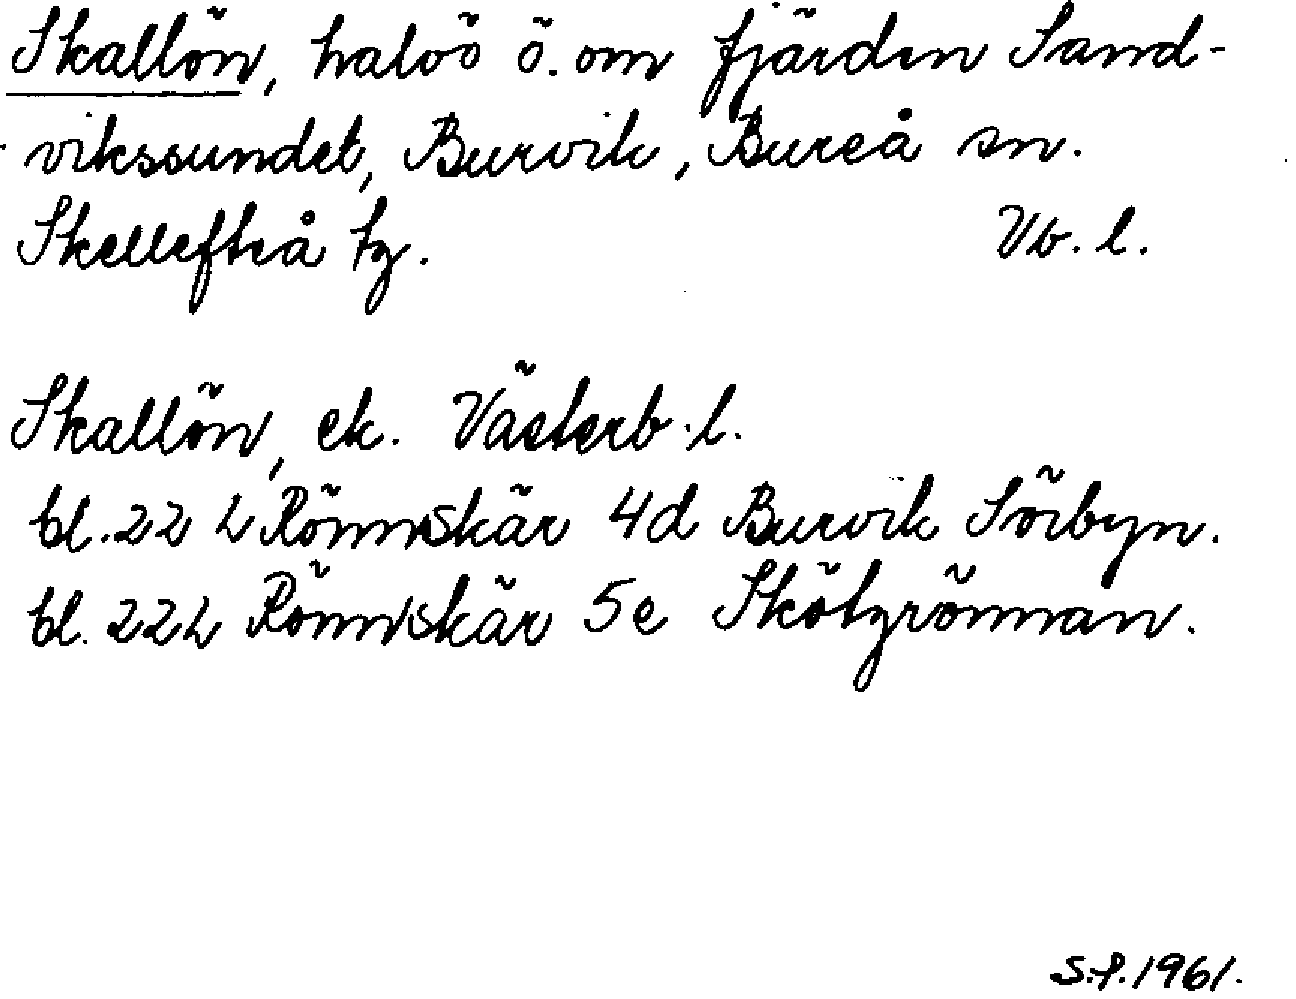 Skallön, halvö ö. om fjärden Sand-
vikssundet, Burvik, Bureå sn.
Skellefteå tg. Vb. l.
Skallön, ek. Västerb. l.
bl. 22 L Rönnskär 4d Burvik Sörbyn.
bl. 22L Rönnskär 5e Skötgrönnan.
S.P. 1961.